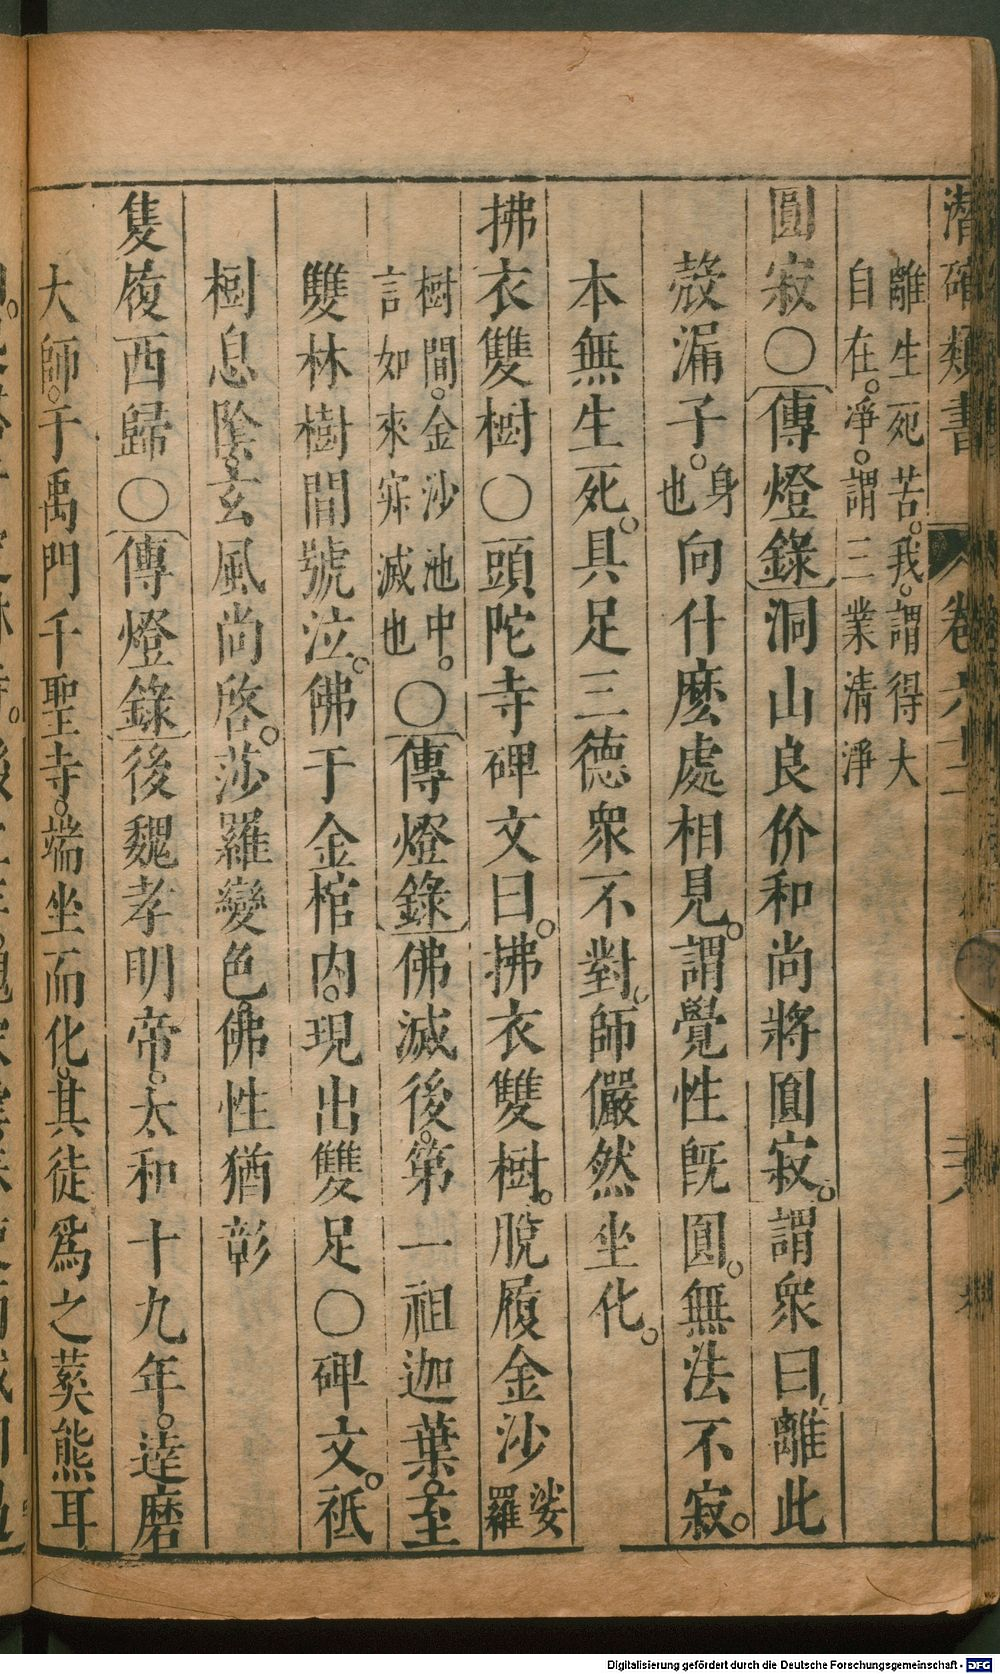 潛確類書 卷六十二
離生死苦。我。謂得大
自在。凈。謂三業清淨
圓寂〇傳燈錄洞山良价和尚將圓寂。謂衆曰離此
殼漏子。身也向什麽處相見。謂覺性旣圓。無法不寂。
本無生死。具足三德衆不對。師儼然坐化。
拂衣雙樹〇頭陀寺碑文曰。拂衣雙樹。脫履金沙娑羅
樹間。金沙池中。
言如來寂滅也〇傳燈錄佛滅後。第一祖迦葉。至
雙林樹間號泣。佛于金棺內。現出雙足〇碑文。祗
樹息陰。玄風尚啓。莎羅變色。佛性猶彰
隻履西歸〇傳燈錄後魏孝明帝。太和十九年。達磨
大師。于禹門千聖寺。端坐而化。其徒爲之葬熊耳
Digitalisierung gefördert durch die Deutsche Forschungsgemeinschaft - DFG